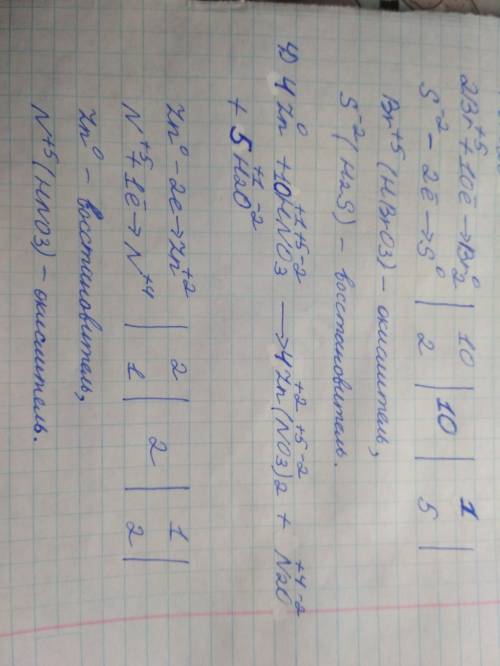 2Br⁺⁵ + 10ē → Br₂⁰ | 10 | 10 | 1
S⁻² - 2ē → S⁰ | 2 | | 5 |
Br⁺⁵ (HBrO3) - окислитель,
S⁻² (H2S) - восстановитель.
4) 4Zn⁰ + 10H⁺¹N⁺⁵O⁻²3 → 4Zn⁺²(N⁺⁵O⁻²3)2 + N⁺⁴2O⁻²
+ 5H⁺¹2O⁻²
Zn⁰ - 2ē → Zn⁺² | 2 | 2 | 1
N⁺⁵ + 1ē → N⁺⁴ | 1 | | 2
Zn⁰ - восстановитель,
N⁺⁵ (HNO3) - окислитель.